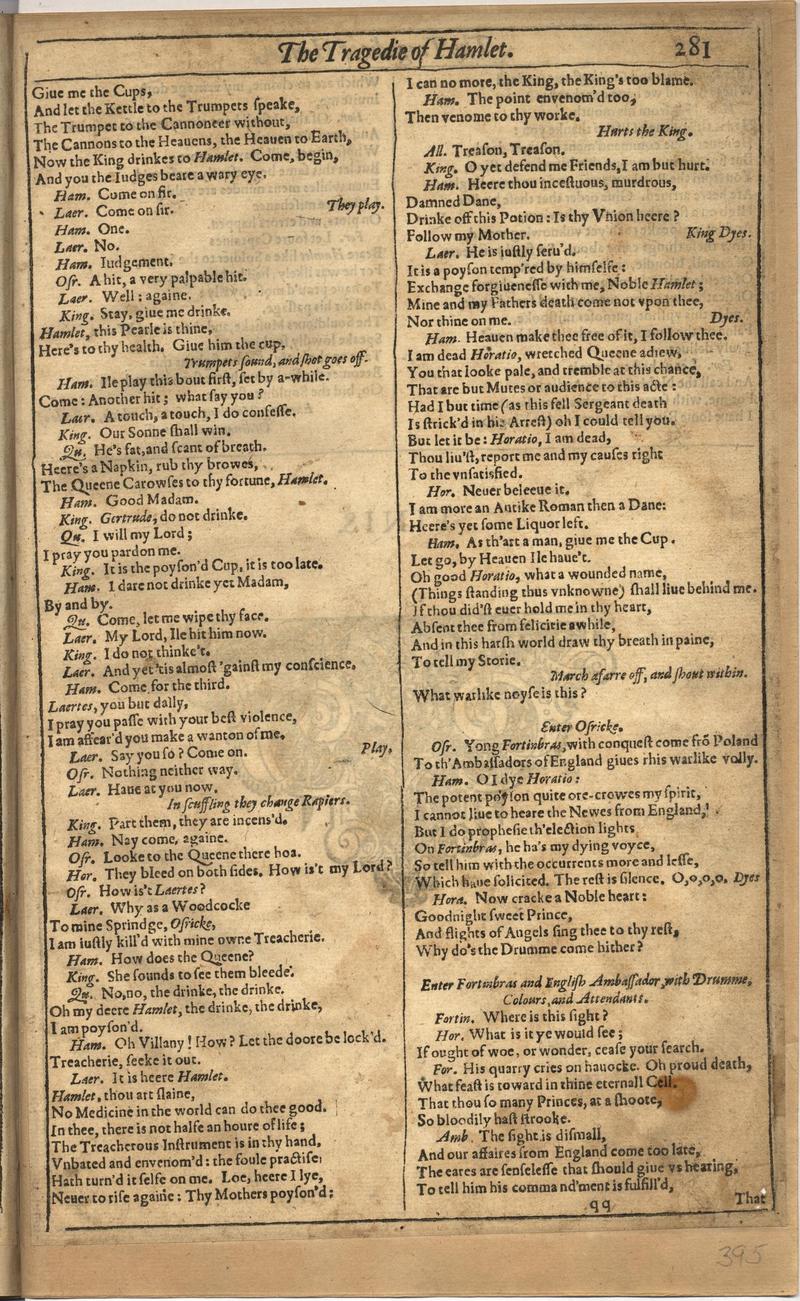 The Tragedie of Hamlet. 281
Giue me the Cups,
And let the Kettle to the Trumpets speake,
The Trumpet to the Cannoneer without,
The Cannons to the Heauens, the Heauen to Earth,
Now the King drinkes to Hamlet. Come, begin,
And you the Iudges beare a wary eye.
Ham. Come on sir.
Laer. Come on sir. They play.
Ham. One.
Laer. No.
Ham. Iudgement.
Osr. A hit, a very palpable hit.
Laer. Well: againe.
King. Stay, giue me drinke.
Hamlet, this Pearle is thine,
Here's to thy health. Giue him the cup,
Trumpets sound, and shot goes off.
Ham. Ile play this bout first, set by a-while.
Come: Another hit; what say you?
Laer. A touch, a touch, I do confesse.
King. Our Sonne shall win.
Qu. He's fat, and scant of breath.
Heere's a Napkin, rub thy browes,
The Queene Carowses to thy fortune, Hamlet.
Ham. Good Madam.
King. Gertrude, do not drinke.
Qu. I will my Lord;
I pray you pardon me.
King. It is the poyson'd Cup, it is too late.
Ham. I dare not drinke yet Madam,
By and by.
Qu. Come, let me wipe thy face.
Laer. My Lord, Ile hit him now.
King. I do not thinke't.
Laer. And yet 'tis almost 'gainst my conscience.
Ham. Come for the third.
Laertes, you but dally,
I pray you passe with your best violence,
I am affear'd you make a wanton of me.
Laer. Say you so? Come on. Play.
Osr. Nothing neither way.
Laer. Haue at you now.
In scuffling they change Rapiers.
King. Part them, they are incens'd.
Ham. Nay come, againe.
Osr. Looke to the Queene there hoa.
Hor. They bleed on both sides. How is't my Lord?
Osr. How is't Laertes?
Laer. Why as a Woodcocke
To mine Sprindge, Osricke,
I am iustly kill'd with mine owne Treacherie.
Ham. How does the Queene?
King. She sounds to see them bleede.
Qu. No, no, the drinke, the drinke.
Oh my deere Hamlet, the drinke, the drinke,
I am poyson'd.
Ham. Oh Villany! How? Let the doore be lock'd.
Treacherie, seeke it out.
Laer. It is heere Hamlet.
Hamlet, thou art slaine,
No Medicine in the world can do thee good.
In thee, there is not halfe an houre of life;
The Treacherous Instrument is in thy hand,
Vnbated and envenom'd: the foule practise
Hath turn'd it selfe on me. Loe, heere I lye,
Neuer to rise againe: Thy Mothers poyson'd:
I can no more, the King, the King's too blame.
Ham. The point envenom'd too,
Then venome to thy worke.
Hurts the King.
All. Treason, Treason.
King. O yet defend me Friends, I am but hurt.
Ham. Heere thou incestuous, murdrous,
Damned Dane,
Drinke off this Potion: Is thy Vnion heere?
Follow my Mother. King Dyes.
Laer. He is iustly seru'd.
It is a poyson temp'red by himselfe:
Exchange forgiuenesse with me, Noble Hamlet;
Mine and my Fathers death come not vpon thee,
Nor thine on me. Dyes.
Ham. Heauen make thee free of it, I follow thee.
I am dead Horatio, wretched Queene adiew,
You that looke pale, and tremble at this chance,
That are but Mutes or audience to this acte:
Had I but time (as this fell Sergeant death
Is strick'd in his Arrest) oh I could tell you.
But let it be: Horatio, I am dead,
Thou liu'st, report me and my causes right
To the vnsatisfied.
Hor. Neuer beleeue it.
I am more an Antike Roman then a Dane:
Heere's yet some Liquor left.
Ham. As th'art a man, giue me the Cup.
Let go, by Heauen Ile haue't.
Oh good Horatio, what a wounded name,
(Things standing thus vnknowne) shall liue behind me.
If thou did'st euer hold me in thy heart,
Absent thee from felicitie awhile,
And in this harsh world draw thy breath in paine,
To tell my Storie.
March afarre off, and shout within.
What warlike noyse is this?
Enter Osricke.
Osr. Yong Fortinbras, with conquest come frō Poland
To th'Ambassadors of England giues rhis warlike volly.
Ham. O I dye Horatio:
The potent poyson quite ore-crowes my spirit,
I cannot liue to heare the Newes from England,
But I do prophesie th'election lights
On Fortinbras, he ha's my dying voyce,
So tell him with the occurrents more and lesse,
Which haue solicited. The rest is silence. O,o,o,o. Dyes
Hora. Now cracke a Noble heart:
Goodnight sweet Prince,
And flights of Angels sing thee to thy rest,
Why do's the Drumme come hither?
Enter Fortinbras and English Ambassador, with Drumme,
Colours, and Attendants.
Fortin. Where is this sight?
Hor. What is it ye would see;
If ought of woe, or wonder, cease your search.
For. His quarry cries on hauocke. Oh proud death,
What feast is toward in thine eternall Cell.
That thou so many Princes, at a shoote,
So bloodily hast strooke.
Amb. The sight is dismall,
And our affaires from England come too late,
The eares are senselesse that should giue vs hearing,
To tell him his command'ment is fulfill'd,
qq That
395